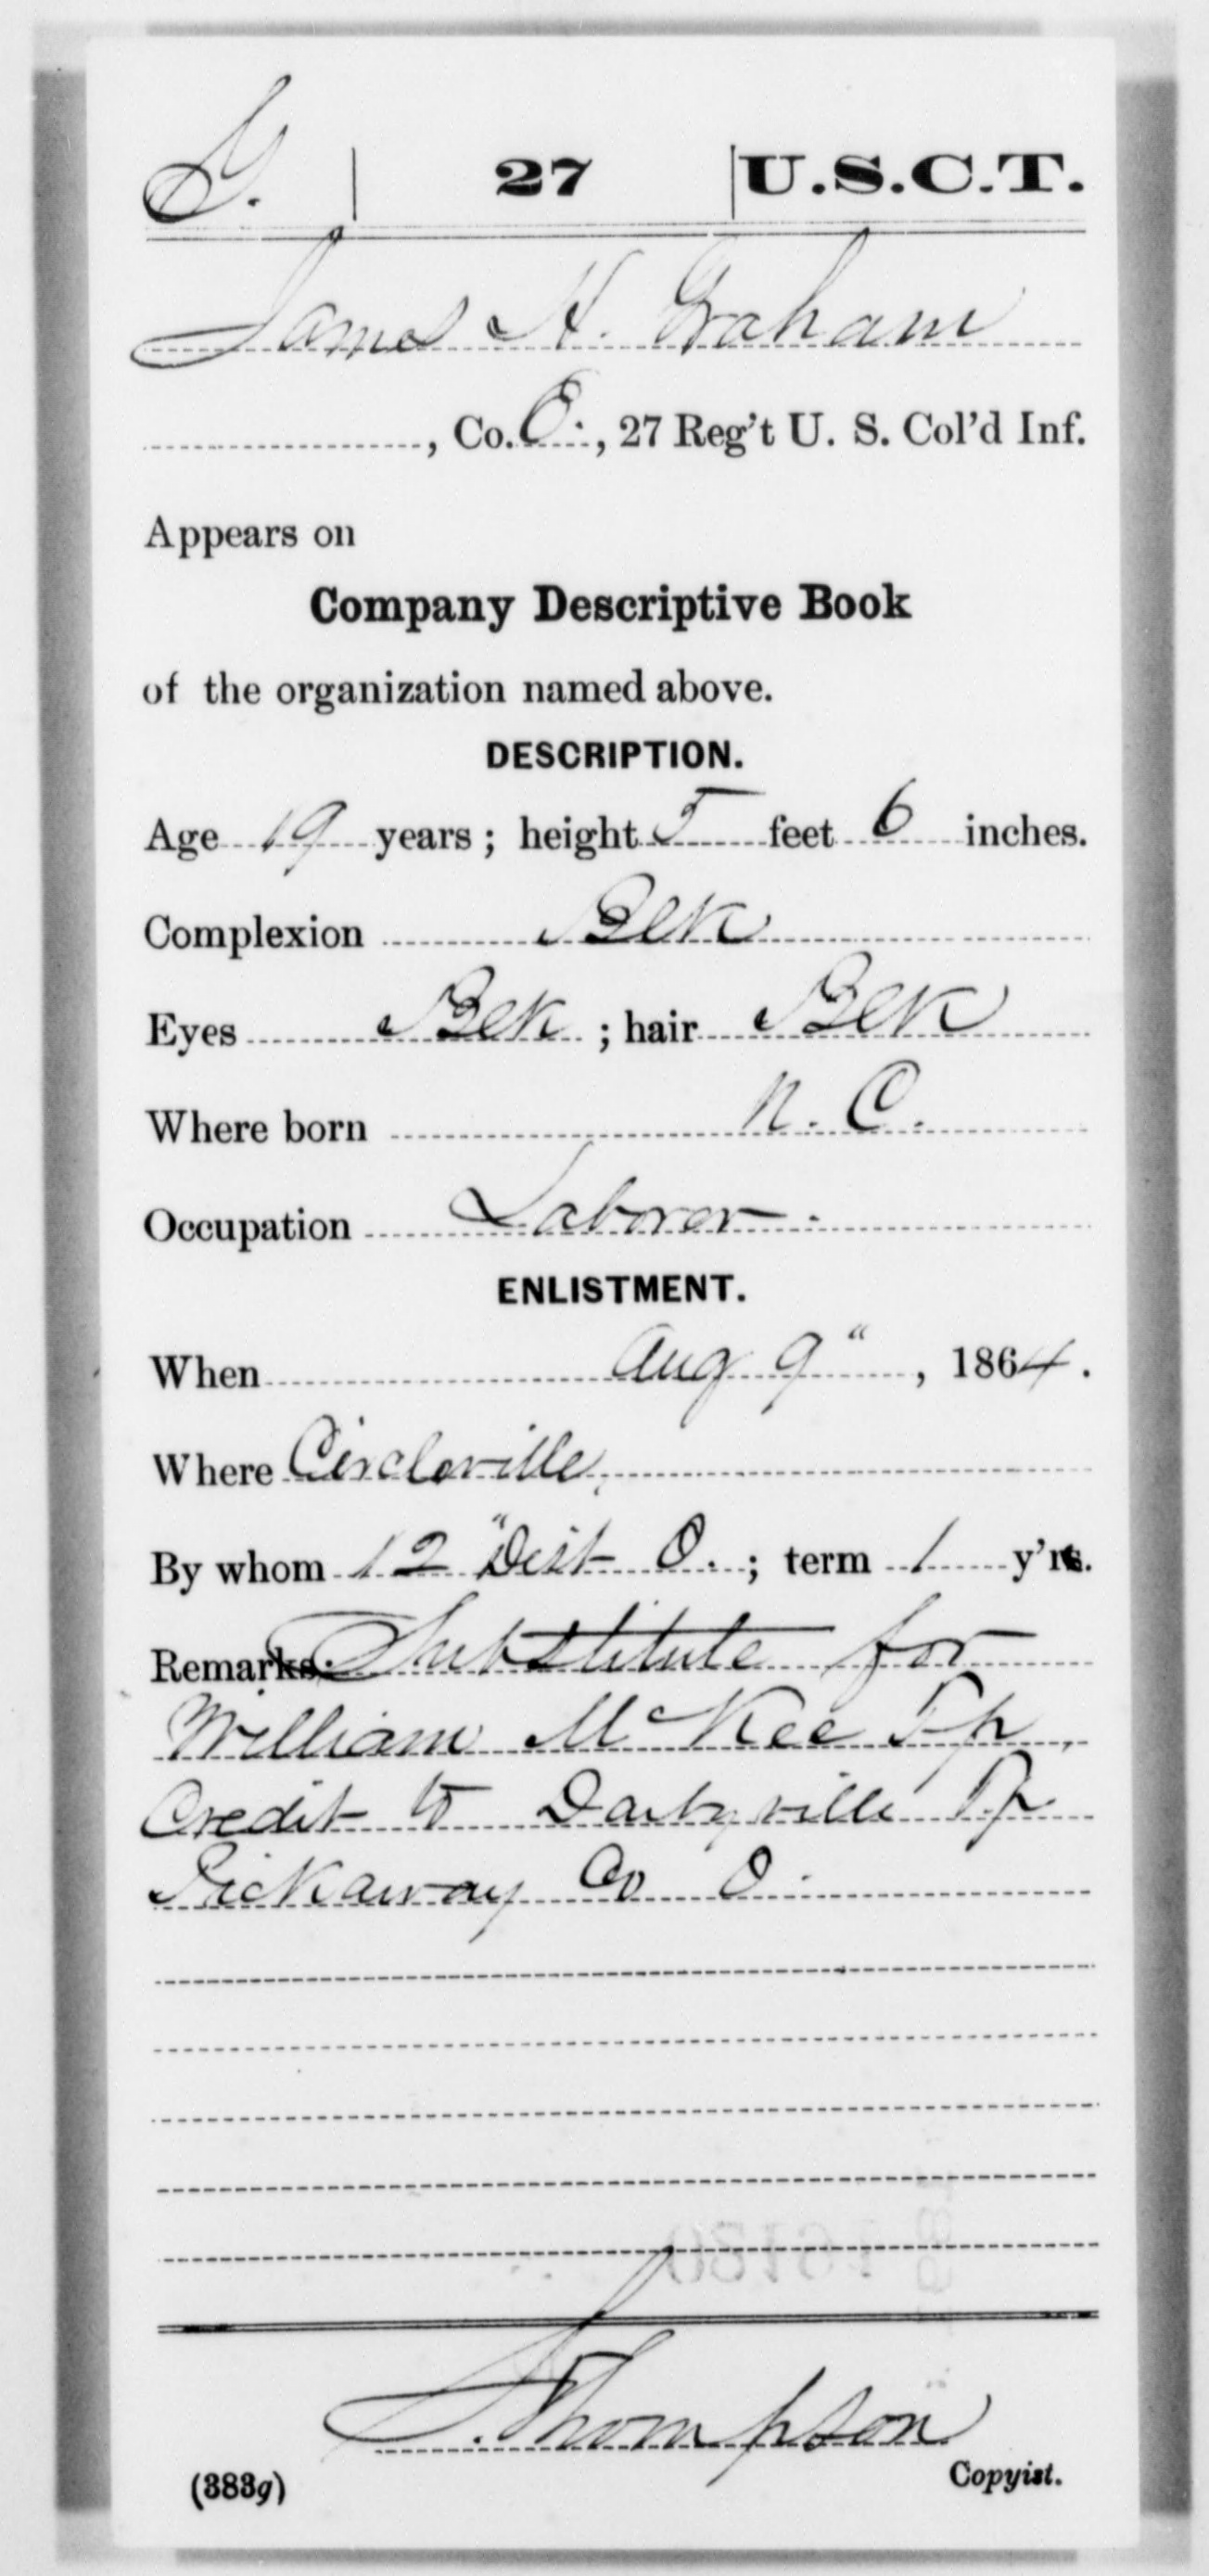 G. | 27 | U.S.C.T.
James H. Graham
, Co. C., 27 Reg't U. S. Col'd Inf.
Appears on
Company Descriptive Book
of the organization named above.
DESCRIPTION.
Age 19 years; height 5 feet 6 inches.
Complexion Blk
Eyes Blk; hair Blk
Where born N. C.
Occupation Laborer.
ENLISTMENT.
When Aug 9", 1864.
Where Circleville,
By whom 12" Dist O.; term 1 y'r.
Remarks: Substitute for
William McKee
Credit to Darbyville Tp
Pickaway Co O.
Thompson
(383g) Copyist.